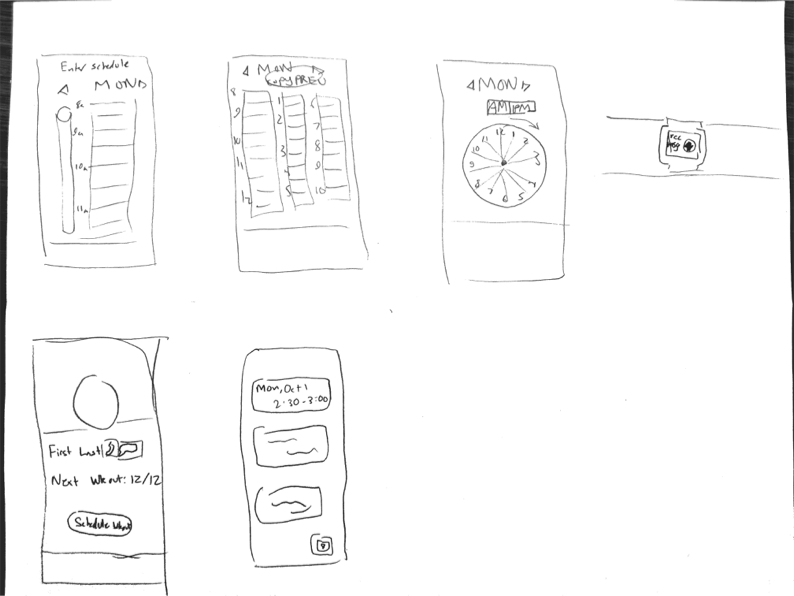 Enter schedule
MON
8a
9a
10a
11a
MON
COPY PREV
8
9
10
11
12
1
2
3
4
5
6
7
8
9
10
MON
AM PM
12
1
2
3
4
5
6
7
8
9
10
11
First Last
Next Wkout: 12/12
Schedule Wkout
Mon, Oct 1
2:30-3:00